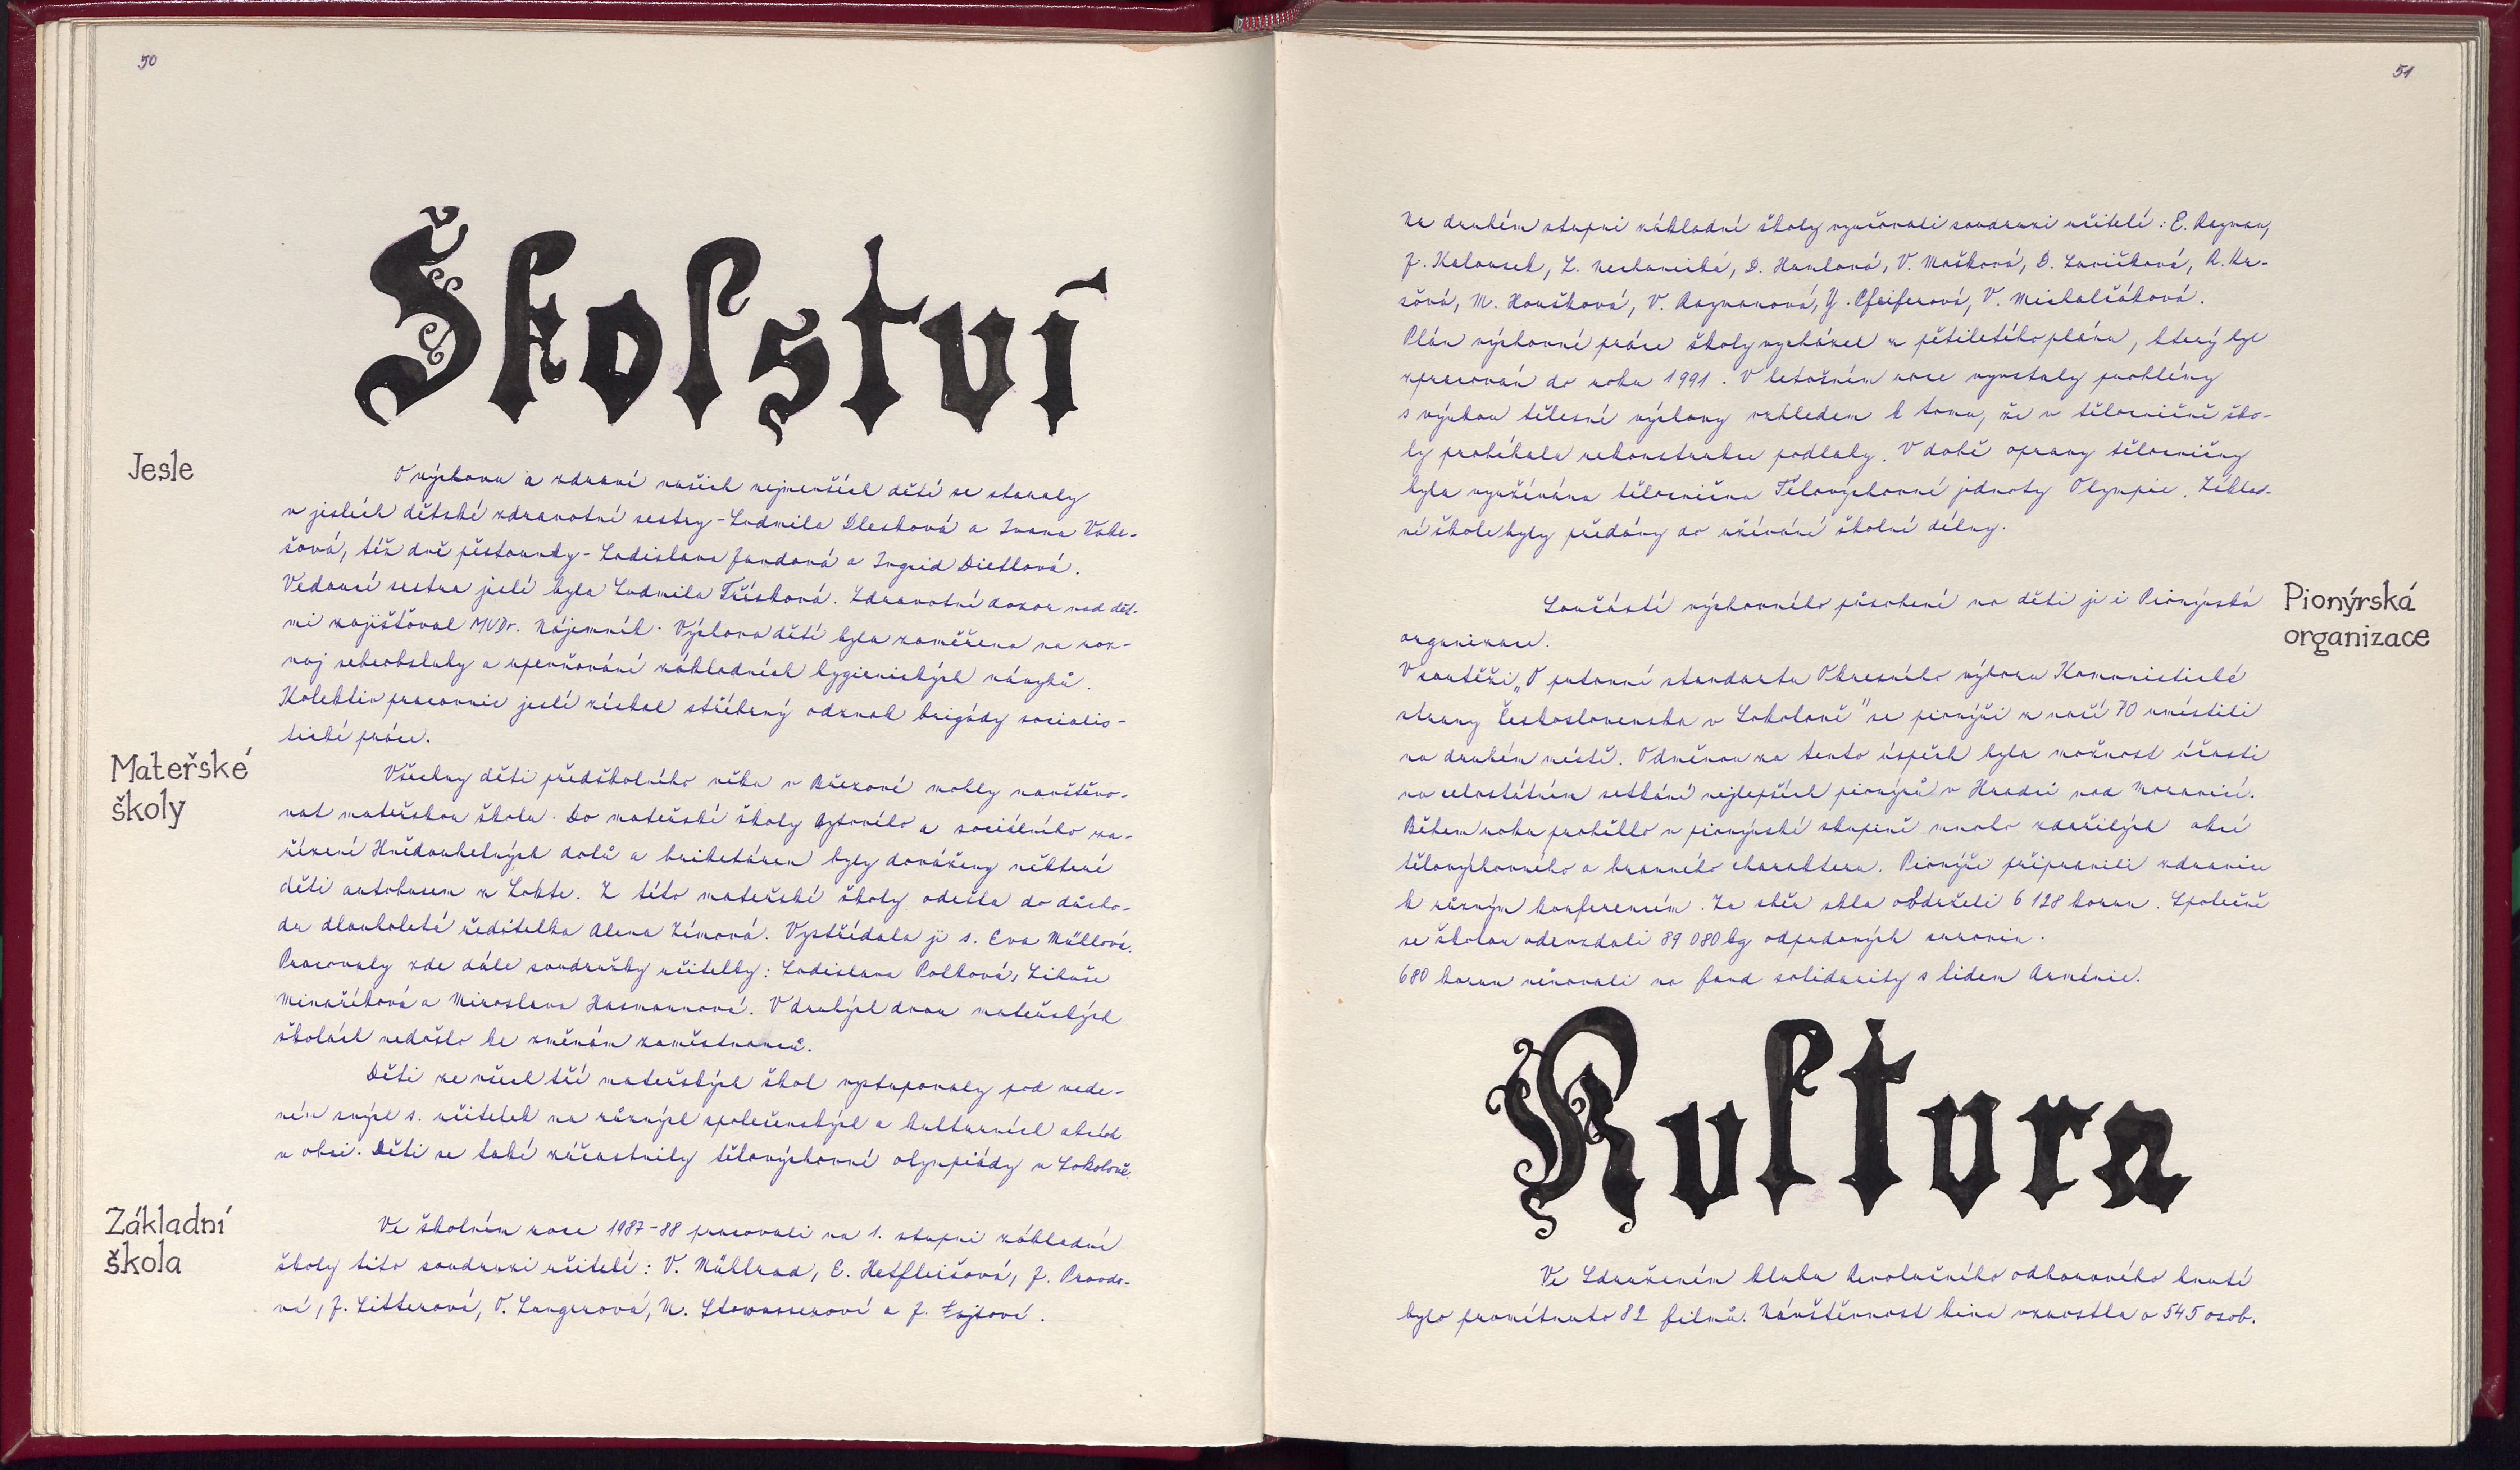 50
Školství
Jesle
O výchovu a zdraví našich nejmenších dětí se staraly
v jeslích dětské zdravotní sestry - Ludmila Dlesková a Ivana Vobe-
šová, též dvě pěstounky - Ladislava Jandová a Ingrid Dietlová.
Vedoucí sestra jeslí byla Ludmila Třísková. Zdravotní dozor nad dět-
mi zajišťoval MUDr. Nájemník. Výchova dětí byla zaměřena na roz-
voj sebeobsluhy a upevňování základních hygienických návyků.
Kolektiv pracovnic jeslí získal stříbrný odznak brigády socialis-
tické práce.
Mateřské
školy
Všechny děti předškolního věku v Březové mohly navštěvo-
vat mateřskou školu. Do mateřské školy bytového a sociálního za-
řízení Hnědouhelných dolů a briketáren byly dováženy některé
děti autobusem z Lokte. Z této mateřské školy odešla do důcho-
du dlouholetá ředitelka Alena Zímová. Vystřídala ji s. Eva Müllová.
Pracovaly zde dále soudružky učitelky: Ladislava Polková, Libuše
Minaříková a Miroslava Hasmannová. V druhých dvou mateřských
školách nedošlo ke změnám zaměstnanců.
Děti ze všech tří mateřských škol vystupovaly pod vede-
ním svých s. učitelek na různých společenských a kulturních akcích
v obci. Děti se také zúčastnily tělovýchovné olympiády v Sokolově.
Základní
škola
Ve školním roce 1987-88 pracovali na 1. stupni základní
školy tito soudruzi učitelé: V. Müllerová, E. Hetfleišová, J. Pravdo-
vá, J. Litterová, V. Langrová, N. Stowasserová a J. Fojtová.
51
Na druhém stupni základní školy vyučovali soudruzi učitelé: E. Rozman,
J. Kalousek, Z. Nechanická, D. Hanlová, V. Mašková, D. Lavičková, R. Ka-
sová, M. Houšková, V. Rozmanová, Y. Pfeiferová, V. Michalčáková.
Plán výchovné práce školy vycházel z pětiletého plánu, který byl
zpracován do roku 1991. V letošním roce vyvstaly problémy
s výukou tělesné výchovy vzhledem k tomu, že v tělocvičně ško-
ly probíhala rekonstrukce podlahy. V době opravy tělocvičny
byla využívána tělocvična Tělovýchovné jednoty Olympie. Základ-
ní škole byly předány do užívání školní dílny.
Pionýrská
organizace
Součástí výchovného působení na děti je i Pionýrská
organizace.
V soutěži „O putovní standartu Okresního výboru Komunistické
strany Československa v Sokolově" se pionýři z naší PO umístili
na druhém místě. Odměnou za tento úspěch byla možnost účasti
na celostátním setkání nejlepších pionýrů v Hradci nad Moravicí.
Během roku proběhlo v pionýrské skupině mnoho zdařilých akcí
tělovýchovného a branného charakteru. Pionýři připravili zdravice
k různým konferencím. Za sběr skla obdrželi 6 128 korun. Společně
se školou odevzdali 89 080 kg odpadových surovin.
680 korun věnovali na fond solidarity s lidem Arménie.
Kultura
Ve Sdruženém klubu Revolučního odborového hnutí
bylo promítnuto 82 filmů. Návštěvnost kina vzrostla o 545 osob.